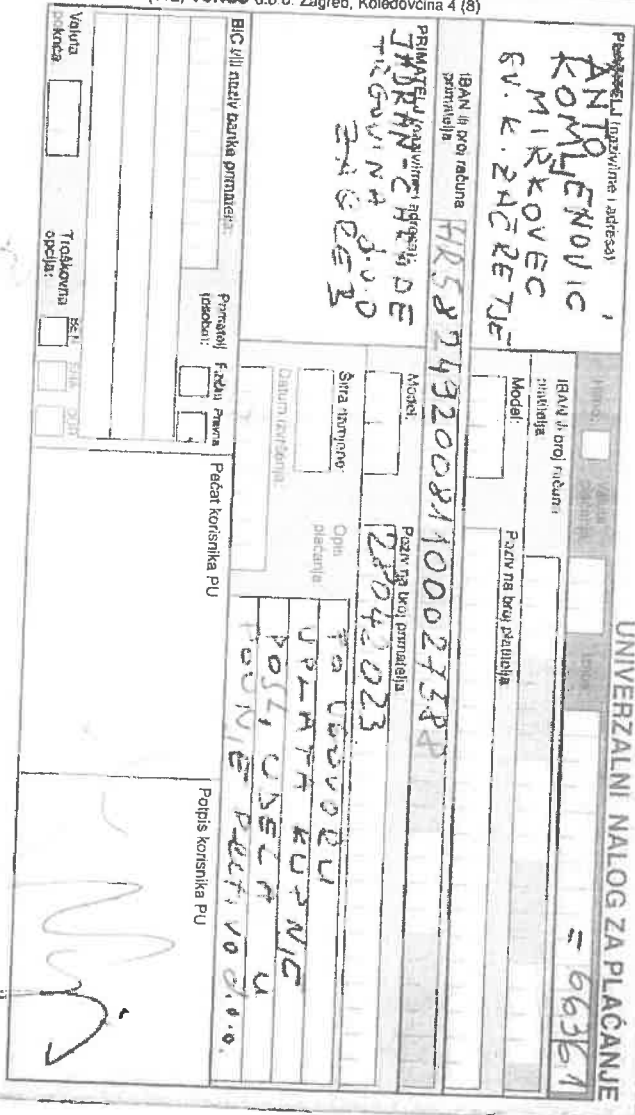 d.o.o. Zagreb, Koledovčina 4 (8)
UNIVERZALNI NALOG ZA PLAĆANJE
PLATITELJ (naziv/ime i adresa):
ANTO
KOMLJENOVIĆ
MIRKOVEC
SV. K. ZAČRETJE
= 66361
IBAN ili broj računa platitelja
Model:
Poziv na broj platitelja
IBAN ili broj računa primatelja
HR5874920081100027388
PRIMATELJ (naziv/ime i adresa):
JADRAN-
TRGOVINA d.o.o
ZAGREB
Model:
Poziv na broj primatelja
Šifra namjene:
Opis plaćanja:
PO UGOVORU
UPLATA KUPNJE
POSL. UDELA U
d.o.o.
Datum izvršenja:
BIC i/ili naziv banke primatelja:
Primatelj (osoba):
Fizička
Pravna
Valuta pokrića:
Troškovna opcija:
BEN
SHA
OUR
Pečat korisnika PU
Potpis korisnika PU